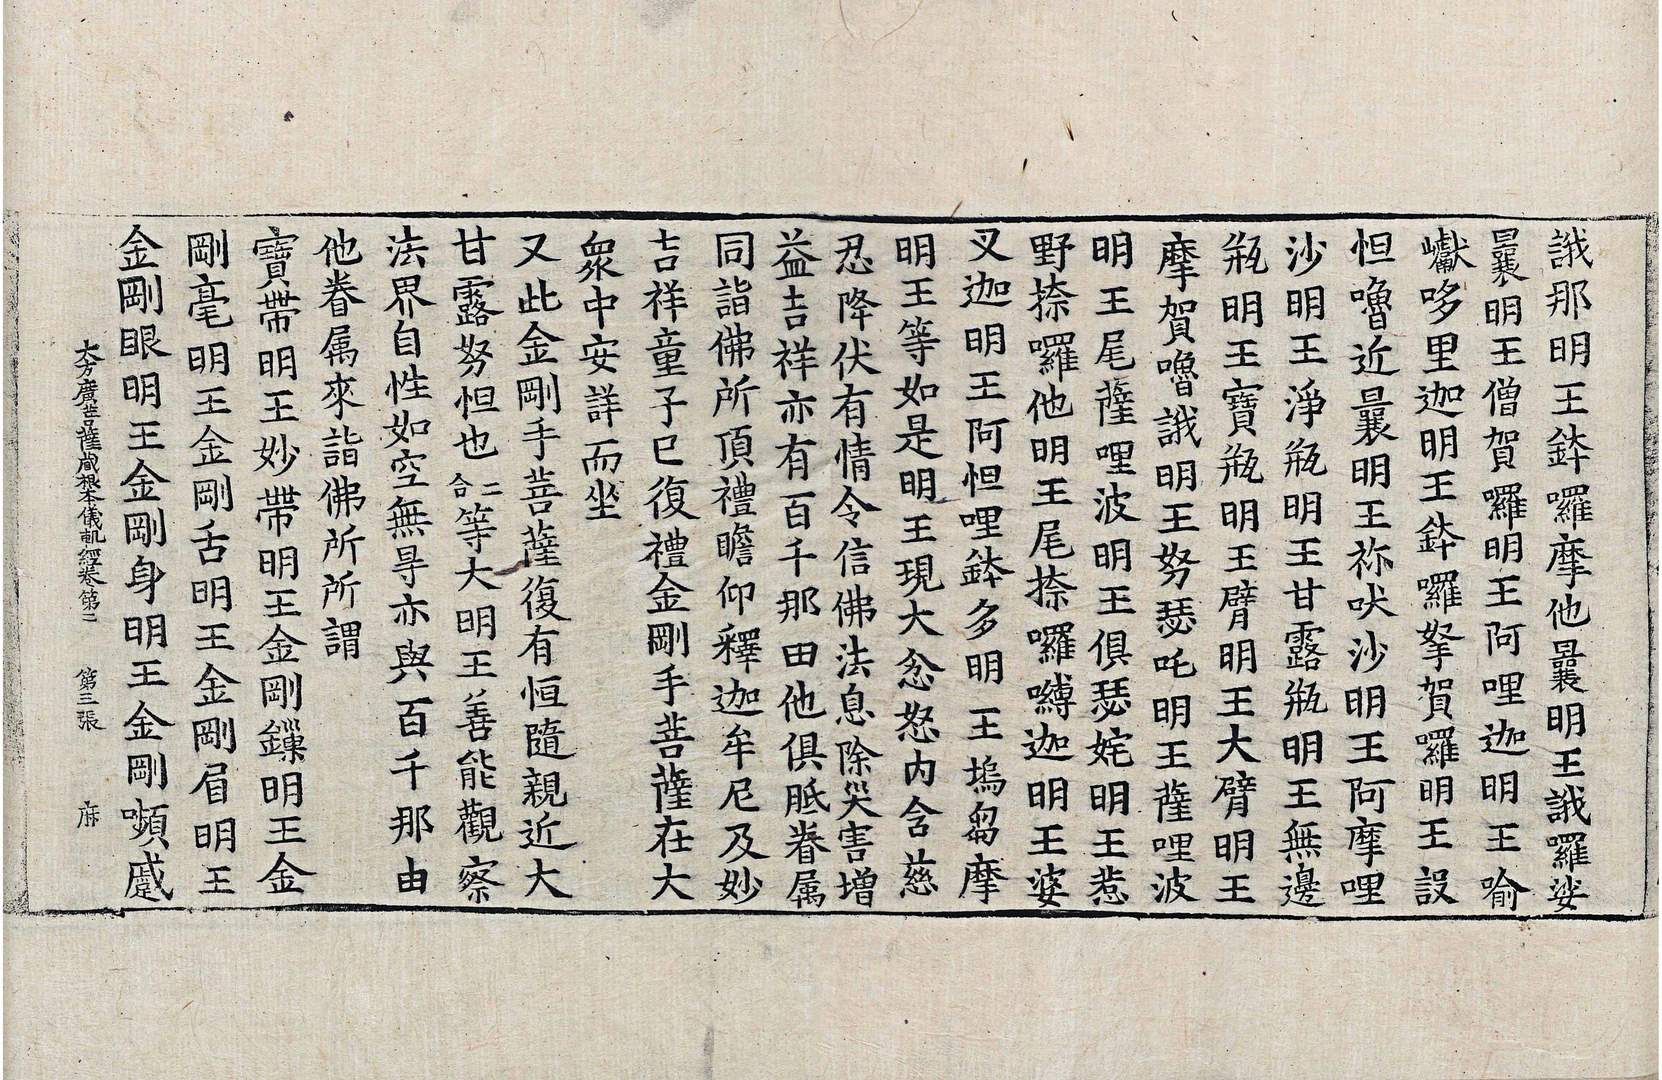 誐那明王鉢囉摩他曩明王誐囉娑
曩明王僧賀囉明王阿哩迦明王喻
巘哆里迦明王鉢囉拏賀囉明王設
怛嚕近曩明王祢吠沙明王阿摩哩
沙明王淨瓶明王甘露瓶明王無邊
瓶明王寶瓶明王臂明王大臂明王
摩賀嚕誐明王努瑟吒明王薩哩波
明王尾薩哩波明王俱瑟姹明王惹
野捺囉他明王尾捺囉嚩迦明王婆
叉迦明王阿怛哩鉢多明王塢芻摩
明王等如是明王現大忿怒內含慈
忍降伏有情令信佛法息除災害增
益吉祥亦有百千那由他俱胝眷属
同詣佛所頂禮瞻仰釋迦牟尼及妙
吉祥童子已復禮金剛手菩薩在大
衆中安詳而坐
又此金剛手菩薩復有恒隨親近大
甘露努怛也二合等大明王善能觀察
法界自性如空無㝵亦與百千那由
他眷属來詣佛所所謂
寶帶明王妙帶明王金剛鏁明王金
剛毫明王金剛舌明王金剛眉明王
金剛眼明王金剛身明王金剛嚬蹙
大方廣菩薩藏根本儀軌經卷第二　第三張　㾗